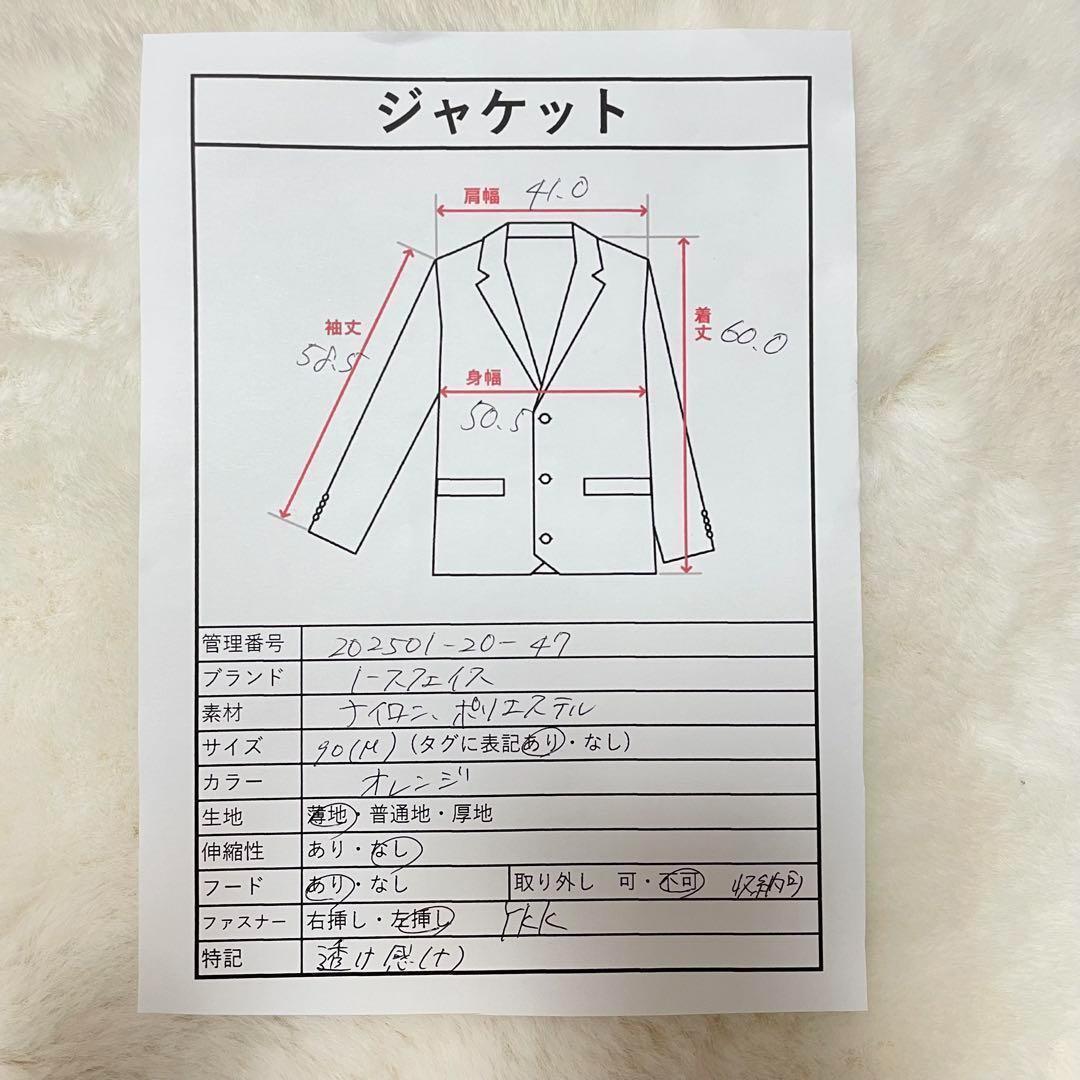 ジャケット
肩幅 41.0
袖丈
58.5
着丈 60.0
身幅
50.5
管理番号 202501-20-47
ブランド ノースフェイス
素材 ナイロン、ポリエステル
サイズ 90(M) (タグに表記あり・なし)
カラー オレンジ
生地 薄地・普通地・厚地
伸縮性 あり・なし
フード あり・なし 取り外し 可・不可 収納可
ファスナー 右挿し・左挿し YKK
特記 透け感(+)